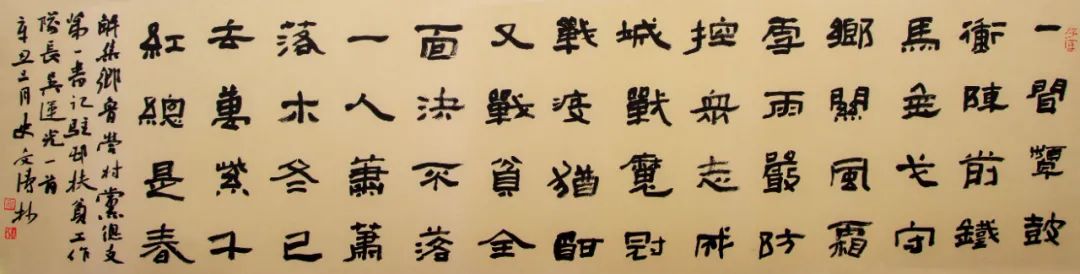 一聞鼙鼓
衝陣前鐵
馬金戈守
鄉關風霜
雪雨嚴防
控眾志成
城戰魔冠
戰疫猶酣
又戰貧全
面決不落
一人蕭蕭
落木冬已
去萬紫千
紅總是春
解集鄉魯營村黨總支
第一書记駐邨扶貧工作
隊長吳運光一首
辛丑三月史文濤抄